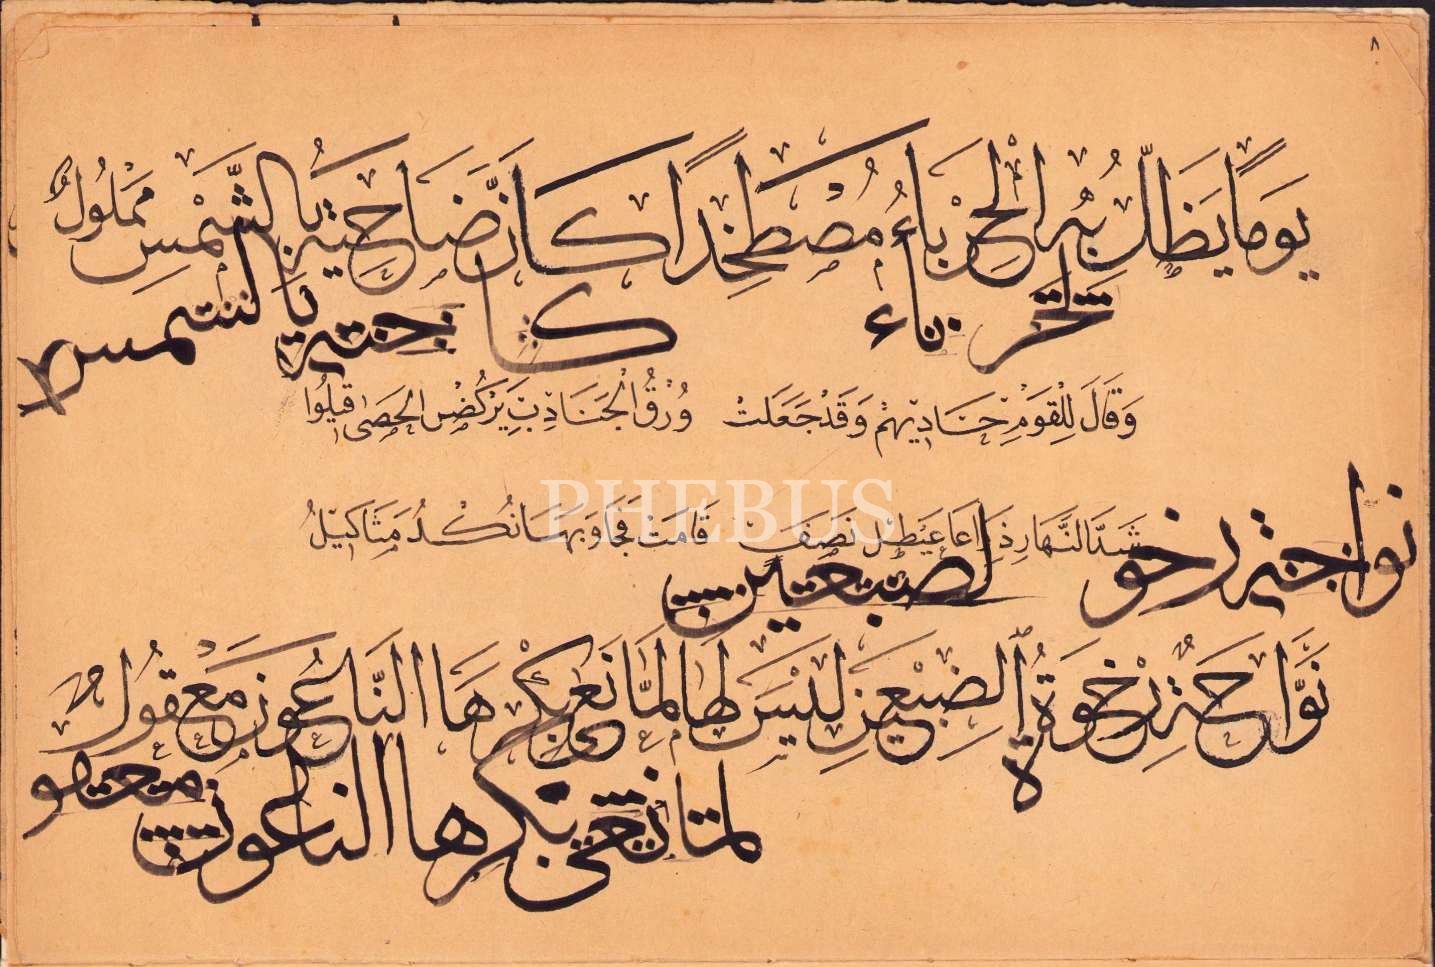 ٨
يَوْمًا يَظَلُّ بِهِ الْحِرْبَاءُ مُصْطَخِدًا كَأَنَّ ضَاحِيَهُ بِالشَّمْسِ مَمْلُولُ
كا حيه بالشمس
وَقَالَ لِلْقَوْمِ حَادِيهِمْ وَقَدْ جَعَلَتْ وُرْقُ الْجَنَادِبِ يَرْكُضْنَ الْحَصَى قِيلُوا
شَدَّ النَّهَارِ ذِرَاعَا عَيْطَلٍ نَصَفٍ قَامَتْ فَجَاوَبَهَا نُكْدٌ مَثَاكِيلُ
نواحة رخو
لضبعين
نَوَّاحَةٌ رِخْوَةُ الضَّبْعَيْنِ لَيْسَ لَهَا لَمَّا نَعَى بِكْرَهَا النَّاعُونَ مَعْقُولُ
لما نعى بكرها الناعون معقو
PHEBUS